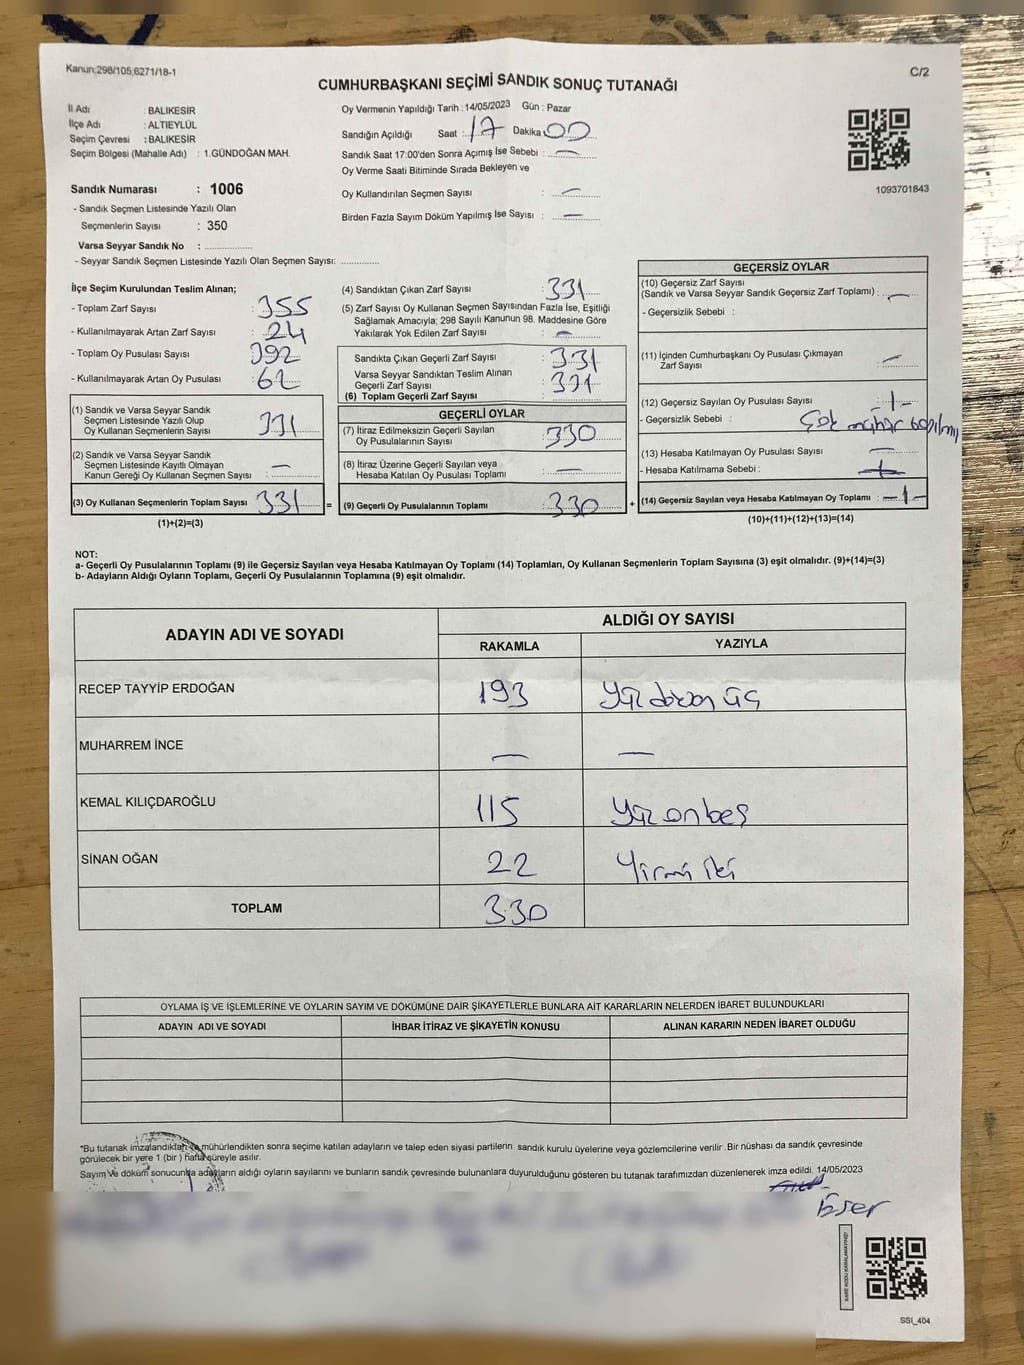 Kanun;298/105,6271/18-1
C/2
CUMHURBAŞKANI SEÇİMİ SANDIK SONUÇ TUTANAĞI
İl Adı : BALIKESİR
İlçe Adı : ALTIEYLÜL
Seçim Çevresi : BALIKESİR
Seçim Bölgesi (Mahalle Adı) : 1.GÜNDOĞAN MAH.
Sandık Numarası : 1006
- Sandık Seçmen Listesinde Yazılı Olan
Seçmenlerin Sayısı : 350
Varsa Seyyar Sandık No : ...............
- Seyyar Sandık Seçmen Listesinde Yazılı Olan Seçmen Sayısı: ............
Oy Vermenin Yapıldığı Tarih : 14/05/2023 Gün : Pazar
Sandığın Açıldığı Saat : 17 Dakika 00
Sandık Saat 17:00'den Sonra Açımış İse Sebebi : —
Oy Verme Saati Bitiminde Sırada Bekleyen ve
Oy Kullandırılan Seçmen Sayısı : —
Birden Fazla Sayım Döküm Yapılmış İse Sayısı : —
1093701843
İlçe Seçim Kurulundan Teslim Alınan;
- Toplam Zarf Sayısı : 355
- Kullanılmayarak Artan Zarf Sayısı : 24
- Toplam Oy Pusulası Sayısı : 392
- Kullanılmayarak Artan Oy Pusulası : 62
(1) Sandık ve Varsa Seyyar Sandık
Seçmen Listesinde Yazılı Olup
Oy Kullanan Seçmenlerin Sayısı : 331
(2) Sandık ve Varsa Seyyar Sandık
Seçmen Listesinde Kayıtlı Olmayan
Kanun Gereği Oy Kullanan Seçmen Sayısı : —
(3) Oy Kullanan Seçmenlerin Toplam Sayısı : 331 =
(1)+(2)=(3)
(4) Sandıktan Çıkan Zarf Sayısı : 331
(5) Zarf Sayısı Oy Kullanan Seçmen Sayısından Fazla İse, Eşitliği
Sağlamak Amacıyla; 298 Sayılı Kanunun 98. Maddesine Göre
Yakılarak Yok Edilen Zarf Sayısı : —
Sandıkta Çıkan Geçerli Zarf Sayısı : 331
Varsa Seyyar Sandıktan Teslim Alınan
Geçerli Zarf Sayısı : 331
(6) Toplam Geçerli Zarf Sayısı :
GEÇERLİ OYLAR
(7) İtiraz Edilmeksizin Geçerli Sayılan
Oy Pusulalarının Sayısı : 330
(8) İtiraz Üzerine Geçerli Sayılan veya
Hesaba Katılan Oy Pusulası Toplamı : —
(9) Geçerli Oy Pusulalarının Toplamı : 330 +
GEÇERSİZ OYLAR
(10) Geçersiz Zarf Sayısı
(Sandık ve Varsa Seyyar Sandık Geçersiz Zarf Toplamı) : —
- Geçersizlik Sebebi :
(11) İçinden Cumhurbaşkanı Oy Pusulası Çıkmayan
Zarf Sayısı : —
(12) Geçersiz Sayılan Oy Pusulası Sayısı : -1-
- Geçersizlik Sebebi : Çok mühür basılmış
(13) Hesaba Katılmayan Oy Pusulası Sayısı : —
- Hesaba Katılmama Sebebi :
(14) Geçersiz Sayılan veya Hesaba Katılmayan Oy Toplamı : -1-
(10)+(11)+(12)+(13)=(14)
NOT:
a- Geçerli Oy Pusulalarının Toplamı (9) ile Geçersiz Sayılan veya Hesaba Katılmayan Oy Toplamı (14) Toplamları, Oy Kullanan Seçmenlerin Toplam Sayısına (3) eşit olmalıdır. (9)+(14)=(3)
b- Adayların Aldığı Oyların Toplamı, Geçerli Oy Pusulalarının Toplamına (9) eşit olmalıdır.
ADAYIN ADI VE SOYADI
ALDIĞI OY SAYISI
RAKAMLA YAZIYLA
RECEP TAYYİP ERDOĞAN 193 Yüz doksan üç
MUHARREM İNCE — —
KEMAL KILIÇDAROĞLU 115 Yüz onbeş
SİNAN OĞAN 22 Yirmi iki
TOPLAM 330
OYLAMA İŞ VE İŞLEMLERİNE VE OYLARIN SAYIM VE DÖKÜMÜNE DAİR ŞİKAYETLERLE BUNLARA AİT KARARLARIN NELERDEN İBARET BULUNDUKLARI
ADAYIN ADI VE SOYADI İHBAR İTİRAZ VE ŞİKAYETİN KONUSU ALINAN KARARIN NEDEN İBARET OLDUĞU
*Bu tutanak imzalandıktan ve mühürlendikten sonra seçime katılan adayların ve talep eden siyasi partilerin sandık kurulu üyelerine veya gözlemcilerine verilir. Bir nüshası da sandık çevresinde
görülecek bir yere 1 (bir ) hafta süreyle asılır.
Sayım Ve döküm sonucunda adayların aldığı oyların sayılarını ve bunların sandık çevresinde bulunanlara duyurulduğunu gösteren bu tutanak tarafımızdan düzenlenerek imza edildi. 14/05/2023
KARE KODU KARALAMAYINIZ!
SSI_404